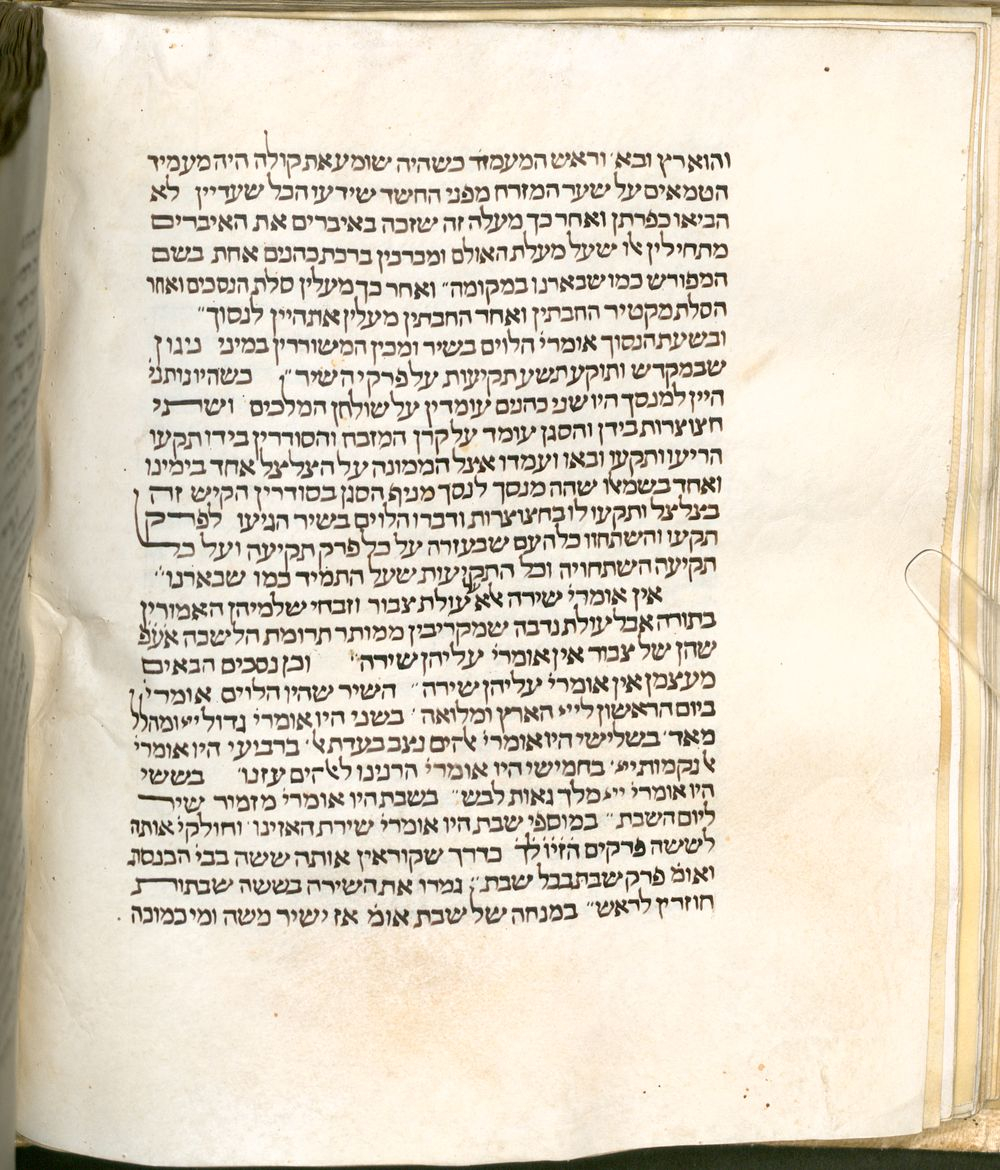 והוא רץ ובא׳ וראש המעמד כשהיה שומע את קולה היה מעמיד
הטמאים על שער המזרח מפני החשד שידעו הכל שעדיין לא
הביאו כפרתן ואחר כך מעלה זה שזכה באיברים את האיברים
מתחילין אלו שעל מעלת האולם ומברכין ברכת כהנים אחת בשם
המפורש כמו שבארנו במקומה״ ואחר כך מעלין סלת הנסכים ואחר
הסלת מקטיר החבתין ואחר החבתין מעלין את היין לנסוך״
ובשעת הנסוך אומרי׳ הלוים בשיר ומכין המשוררין במיני ניגון
שבמקדש ותוקע תשע תקיעות על פרקי השיר״ כשהיו נותני׳
היין למנסך היו שני כהנים עומדין על שולחן המלכים ושתי
חצוצרות בידן והסגן עומד על קרן המזבח והסודרין בידו תקעו
הריעו ותקעו ובאו ועמדו אצל הממונה על הצלצל אחד בימינו
ואחד בשמאלו שהה מנסך לנסך מניף הסגן בסודרין הקיש זה
בצלצל ותקעו לו בחצוצרות ודברו הלוים בשיר הגיעו לפרק
תקעו והשתחוו כל העם שבעזרה על כל פרק תקיעה ועל כל
תקיעה השתחויה וכל התקיעות שעל התמיד כמו שבארנו״
אין אומרי׳ שירה אלא עולת צבור וזבחי שלמיהן האמורין
בתורה אבל עולת נדבה שמקריבין ממותר תרומת הלשכה אעפ
שהן של צבור אין אומרי׳ עליהן שירה״ וכן נסכים הבאים
מעצמן אין אומרי׳ עליהן שירה״ השיר שהיו הלוים אומרי׳
ביום הראשון לייי הארץ ומלואה׳ בשני היו אומרי׳ גדול ייי ומהלל
מאד׳ בשלישי היו אומרי׳ אלהים נצב בעדת אל׳ ברביעי היו אומרי׳
אל נקמות ייי׳ בחמישי היו אומרי׳ הרנינו לאלהים עוזנו׳ בששי
היו אומרי׳ ייי מלך גאות לבש״ בשבת היו אומרי׳ מזמור שיר
ליום השבת״ במוספי שבת היו אומרי׳ שירת האזינו׳ וחולקי׳ אותה
לששה פרקים הזיו לך כדרך שקוראין אותה ששה בבי׳ הכנסת
ואומ׳ פרק שבת בכל שבת״ גמרו את השירה בששה שבתות
חוזרין לראש״ במנחה של שבת אומ׳ אז ישיר משה ומי כמוכה